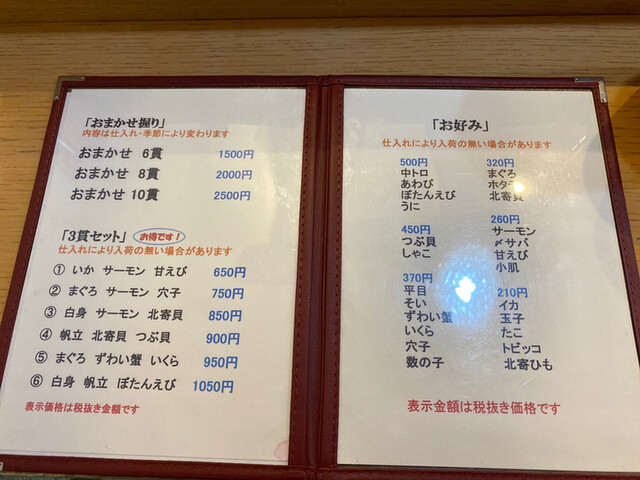 「おまかせ握り」
内容は仕入れ・季節により変わります
おまかせ 6貫 1500円
おまかせ 8貫 2000円
おまかせ 10貫 2500円
「3貫セット」 お得です！
仕入れにより入荷の無い場合があります
① いか サーモン 甘えび 650円
② まぐろ サーモン 穴子 750円
③ 白身 サーモン 北寄貝 850円
④ 帆立 北寄貝 つぶ貝 900円
⑤ まぐろ ずわい蟹 いくら 950円
⑥ 白身 帆立 ぼたんえび 1050円
表示価格は税抜き金額です
「お好み」
仕入れにより入荷の無い場合があります
500円
中トロ
あわび
ぼたんえび
うに
450円
つぶ貝
しゃこ
370円
平目
そい
ずわい蟹
いくら
穴子
数の子
320円
まぐろ
ホタテ
北寄貝
260円
サーモン
〆サバ
甘えび
小肌
210円
イカ
玉子
たこ
トビッコ
北寄ひも
表示金額は税抜き価格です